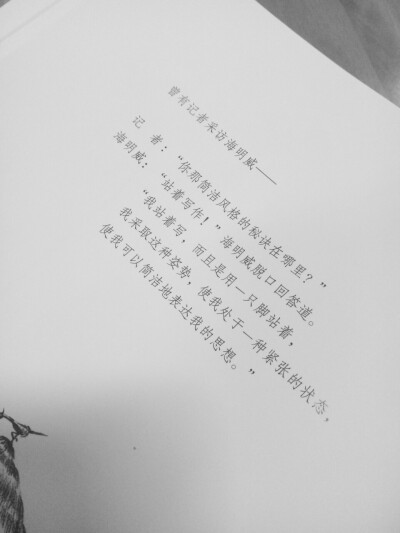 曾有记者采访海明威——
记　者：“你那简洁风格的秘诀在哪里？”
海明威：“站着写作！”海明威脱口回答道。
“我站着写，而且是用一只脚站着，
我采取这种姿势，使我处于一种紧张的状态，
使我可以简洁地表达我的思想。”